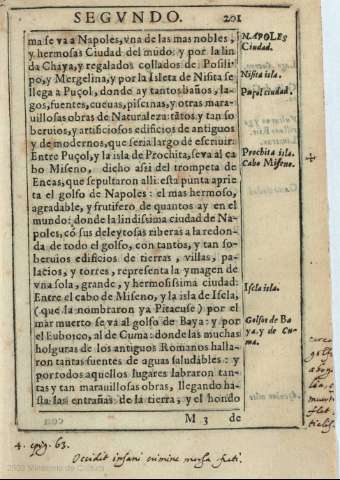 SEGVNDO. 201
ma se va a Napoles, vna de las mas nobles,
y hermosas Ciudad del mũdo: y por la lin
da Chaya, y regalados collados de Posili-
po, y Mergelina, y por la Isleta de Nisita se
llega a Puçol, donde ay tantos baños, la-
gos, fuentes, cueuas, piscinas, y otras mara-
uillosas obras de Naturaleza: tãtos y tan so
beruios, y artificiosos edificios de antiguos
y de modernos, que seria largo de escriuir.
Entre Puçol, y la isla de Prochita, se va al ca
bo Miseno, dicho assi del trompeta de
Eneas, que sepultaron alli: esta punta aprie
ta el golfo de Napoles: el mas hermoso,
agradable, y frutifero de quantos ay en el
mundo: donde la lindissima ciudad de Na-
poles, cõ sus deleytosas riberas a la redon-
da de todo el golfo, con tantos, y tan so-
beruios edificios de tierras, villas, pa-
lacios, y torres, representa la ymagen de
vna sola, grande, y hermosissima ciudad.
Entre el cabo de Miseno, y la isla de Iscla,
(que la nombraron ya Pitacuse) por el
mar muerto se va al golfo de Baya: y por
el Euboico, al de Cuma: donde las muchas
holguras de los antiguos Romanos halla-
ron tantas fuentes de aguas saludables: y
por todos aquellos lugares labraron tan-
tas y tan marauillosas obras, llegando ha-
sta las entrañas de la tierra, y el hondo
M 3 de
NAPOLES
Ciudad.
Nisita isla.
Puçol ciudad.
Prochita isla.
Cabo Miseno.
Iscla isla.
Golfos de Ba
ya, y de Cu-
ma.
4. epig. 63.
Occidit insani crimine mersa freti.
2009 Ministerio de Cultura